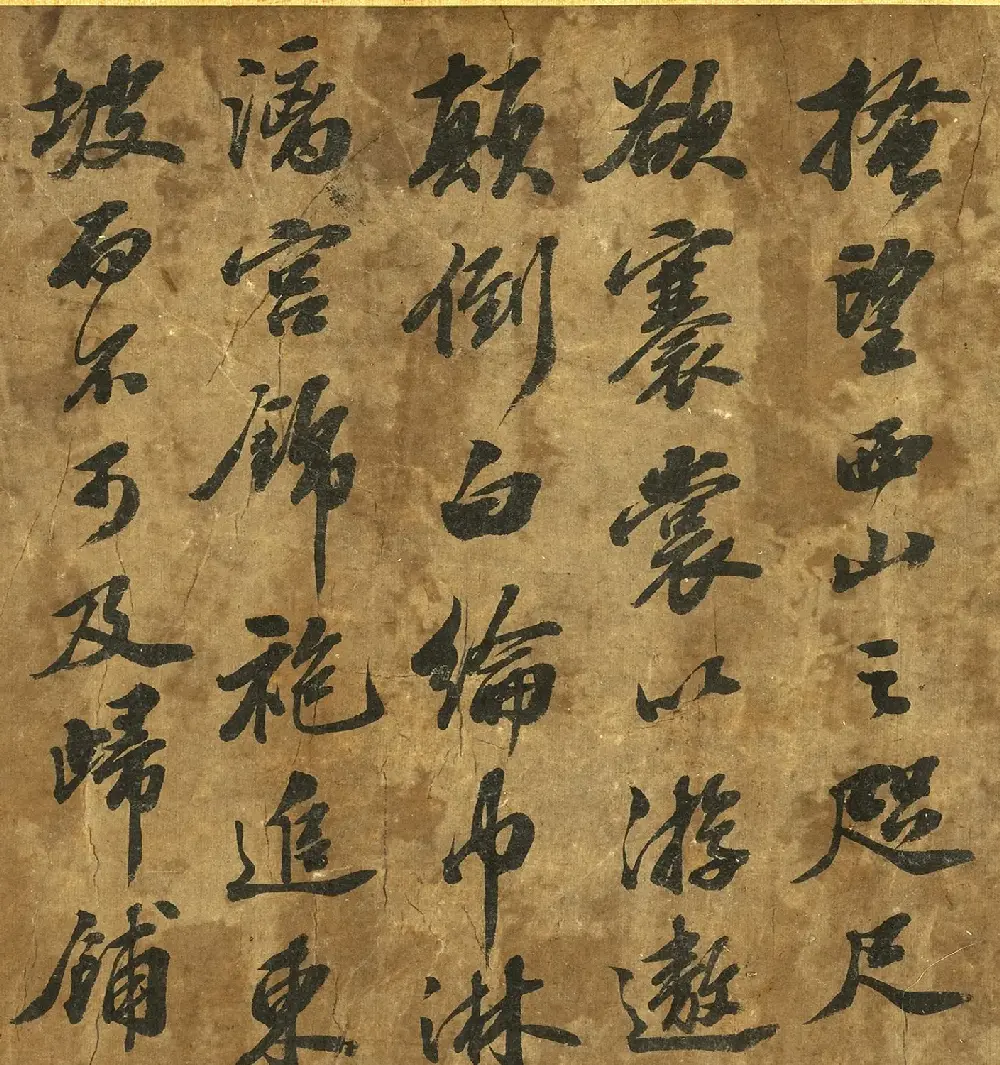 搔望西山之咫尺
欲褰裳以游遨
顛倒白綸巾淋
漓宮錦袍進東
坡而不可及歸餔